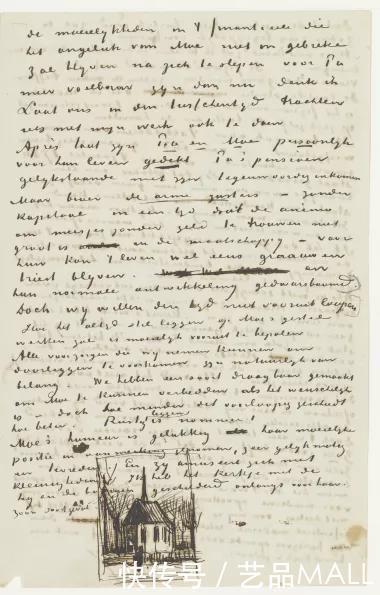 de moeielykheden in 't financieele die
het ongeluk van Moe niet in gebreke
zal blyven na zich te slepen voor Pa
meer voelbaar zyn dan nu denk ik
Laat ons in den tusschentyd trachten
iets met myn werk ook te doen
Après tout zyn Pa en Moe persoonlyk
voor hun leven gedekt Pa's pensioen
gelykstaande met zyn tegenwoordig inkomen
Maar broer de arme zusters – zonder
kapitaal in een tyd dat de animo
om meisjes zonder geld te trouwen niet
groot is in de maatschappy – voor
hun kan 't leven wel eens graauw en
triest blyven. en
hun normale ontwikkeling gedwarsboomd
Doch wy willen den tyd niet vooruit loopen
Hoe het altyd stil leggen op Moe's gestel
werken zal is moeielyk vooruit te bepalen
Alle voorzorgen die wy nemen kunnen om
doorleggen te voorkomen zyn natuurlyk van
belang. We hebben een soort draagbaar gemaakt
om Moe te kunnen verbedden als het wenschelyk
is – doch hoe minder dit voorloopig geschiedt
hoe beter. Rustig leggen is nommer 1
Moe's humeur is gelukkig haar moeielyke
positie in aanmerking genomen, zeer gelykmatig
en tevreden. En zy amuseert zich met
kleinigheden 'k Heb het kerkje met de
heg en de boomen geschilderd onlangs voor haar.
zoo iets
快传号 / 艺品MALL